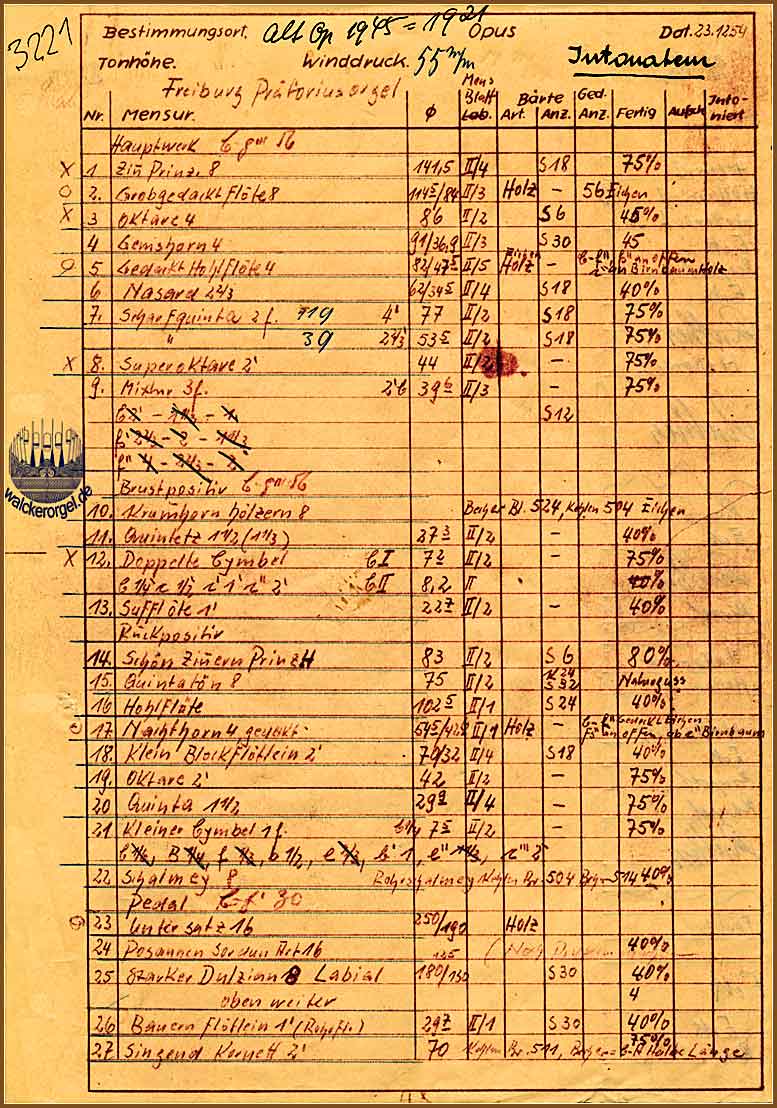 3221
Bestimmungsort. Alt Op 1945 = 1921 Opus Dat. 23.1254
Tonhöhe. Winddruck. 55 m/m Intonateur
Freiburg Prätoriusorgel
Nr. Mensur. φ Mens Blatt Lab. Bärte Art. Anz. Ged. Anz. Fertig Aufsch Into-niert
Hauptwerk C-g''' 56
X 1 Zin Prinz. 8 141,5 II/4 S18 75%
O 2. Grobgedackt Flöte 8 II/3 Holz - 56 Eichen
X 3 Oktave 4 86 II/2 S6 45%
4 Gemshorn 4 91/36,9 II/3 S30 45
5 Gedackt Hohlflöte 4 II/5 Holz Birnbaumholz
6 Nasard 2 2/3 II/4 S18 40%
7. Scharfquinta 2f. 4' 77 II/2 S18 75%
" 39 2 2/3' 53 5 II/2 S18 75%
X 8. Superoktave 2' 44 II/2 - 75%
9. Mixtur 3f. 2'C 39 6 II/3 - 75%
S12
walckerorgel.de
Brustpositiv C-g''' 56
10. Krumhorn hölzern 8 Becher Bl. 524, Kehlen 504 Eichen
11. Quintetz 1 1/2 (1 1/3) 27 3 II/2 - 40%
X 12. Doppelte Cymbel C I 72 II/2 - 75%
C II 8,2 II 40%
13. Sufflöte 1' 22 7 II/2 - 40%
Rückpositiv
14. Schön Zinern Prinz 4 83 II/2 S6 80%
15. Quintatön 8 75 II/2 S32
16 Hohlflöte 102 5 II/1 S24 40%
17. Nachthorn 4 gedackt II/1 Holz -
18. Klein Blockflötlein 2' 79/32 II/4 S18 40%
19. Oktave 2' 42 II/2 - 75%
20 Quinta 1 1/2 29 9 II/4 - 75%
21 Kleiner Cymbel 1f. 7 5 II/2 - 75%
22 Schalmey 8 Rohrschalmey Kehlen Br. 504 40%
Pedal C-f' 30
23 Untersatz 16 250/190 Holz
24 Posaunen Sordun Art 16 40%
25 Starker Dulzian 8 Labial 180/150 S30 40%
oben weiter 4
26 Bauern Flötlein 1' (Rohrfl.) 29 7 II/1 S30 40%
75%
27 Singend Kornett 2' 70 Kehlen Br. 511, Becher = C-H Halbe Länge